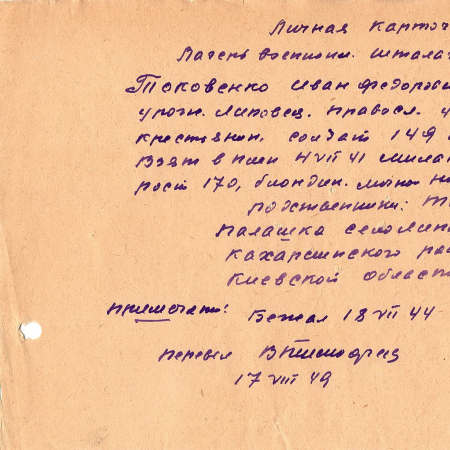 Личная Карточ
Лагерь военнопл. шталаг
Токовенко Иван Федорови
урожн. Липовец. Правосл.
крестьянин. солдат 149
Взят в плен 4 VII 41
рост 170, блондин.
Родственники:
Палашка село Лип
Кахарлинского ра
Киевской област
Примечан: Бежал 18 VII 44
перевел
17 VIII 49